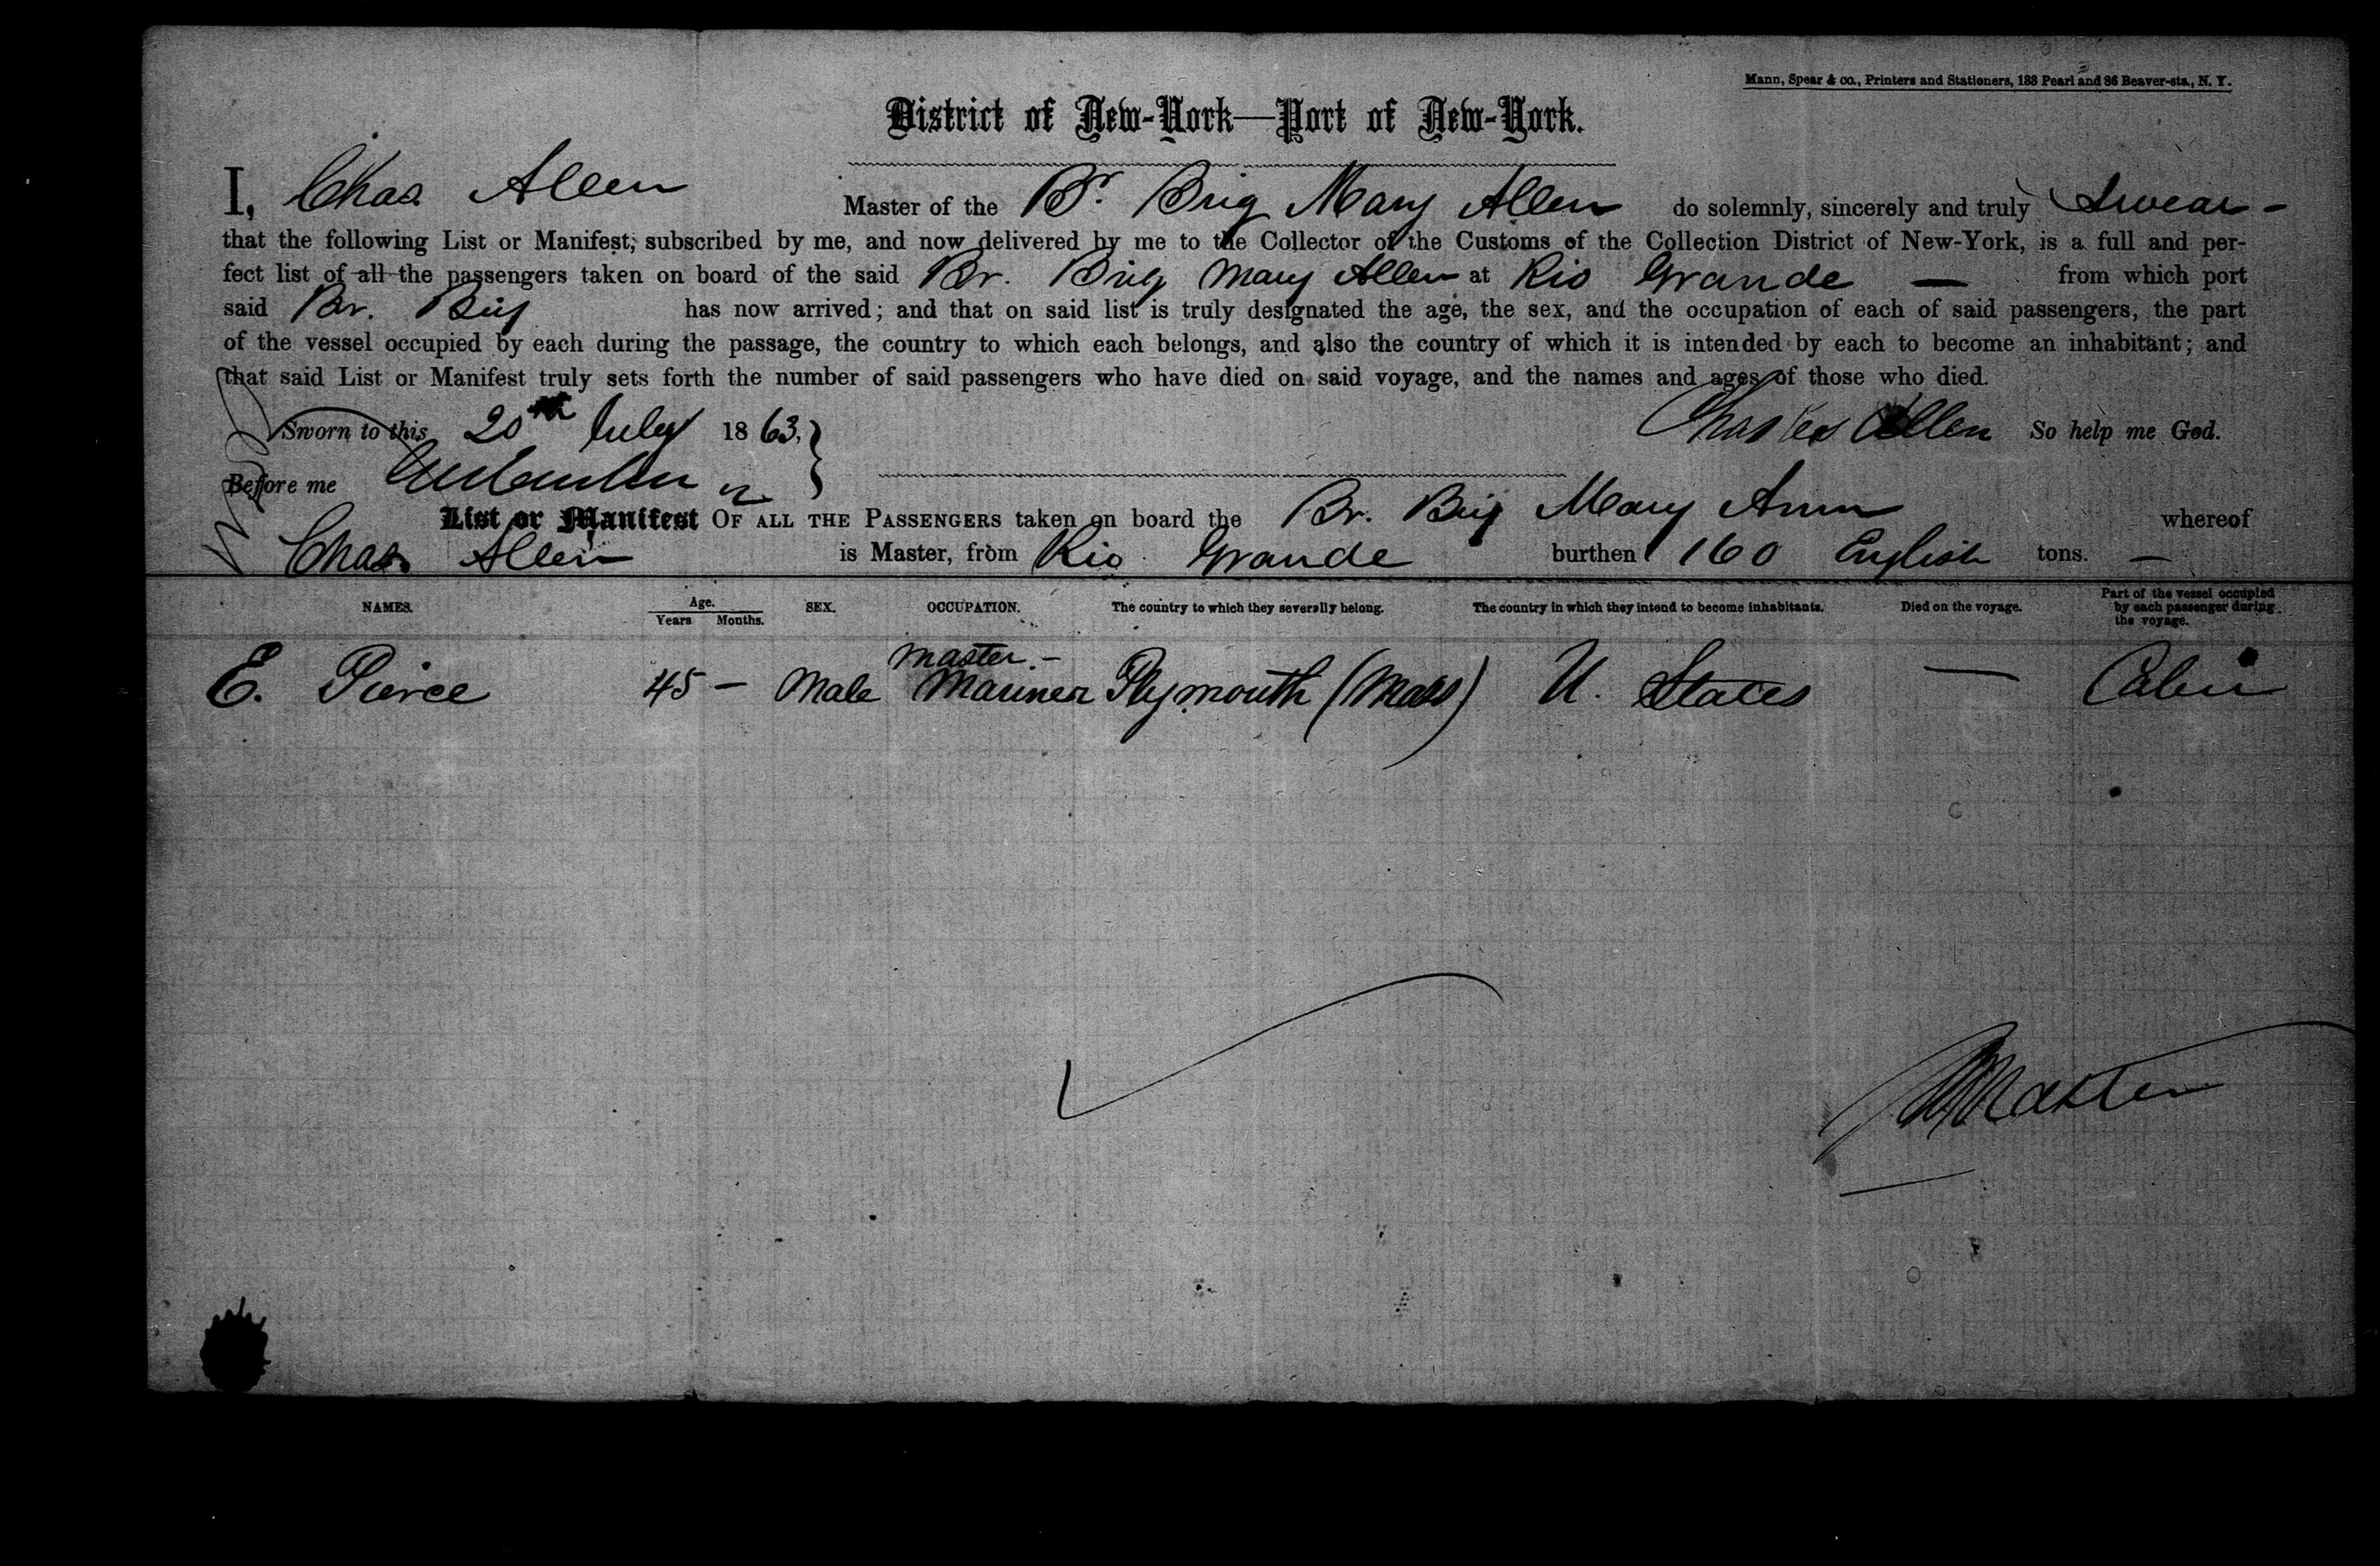 Mann, Spear & co., Printers and Stationers, 188 Pearl and 86 Beaver-sts., N. Y.
District of New-York—Port of New-York.
I, Chas. Allen Master of the Br. Brig Mary Allen do solemnly, sincerely and truly Swear -
that the following List or Manifest, subscribed by me, and now delivered by me to the Collector of the Customs of the Collection District of New-York, is a full and per-
fect list of all the passengers taken on board of the said Br. Brig Mary Allen at Rio Grande — from which port
said Br. Brig has now arrived; and that on said list is truly designated the age, the sex, and the occupation of each of said passengers, the part
of the vessel occupied by each during the passage, the country to which each belongs, and also the country of which it is intended by each to become an inhabitant; and
that said List or Manifest truly sets forth the number of said passengers who have died on said voyage, and the names and ages of those who died.
Sworn to this 20th July 1863, Charles Allen So help me God.
Before me
List or Manifest OF ALL THE PASSENGERS taken on board the Br. Brig Mary Ann whereof
Chas. Allen is Master, from Rio Grande burthen 160 English tons. —
NAMES. Age. Years Months. SEX. OCCUPATION. The country to which they severally belong. The country in which they intend to become inhabitants. Died on the voyage. Part of the vessel occupied by each passenger during the voyage.
master. -
E. Pierce 45 — Male Mariner Plymouth (Mass) U. States — Cabin
Master